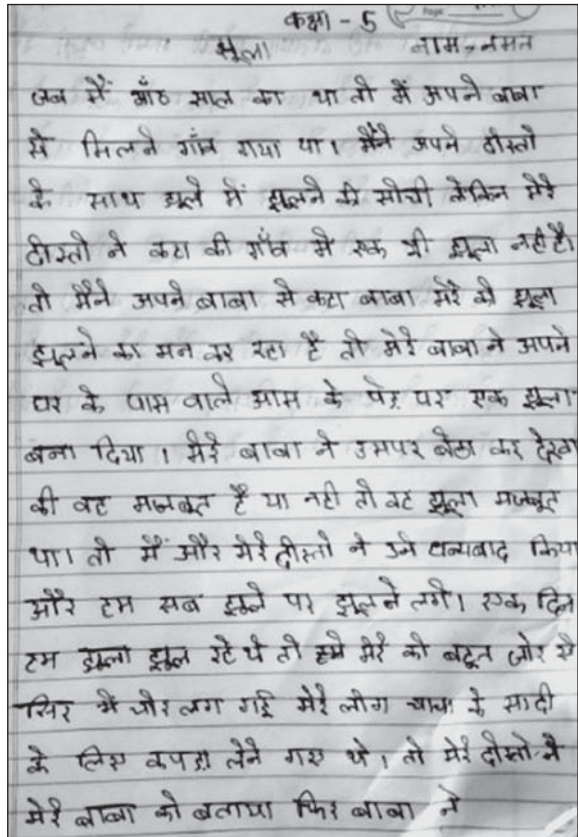 कक्षा - 5
झूला नाम - नमन
जब मैं आँठ साल का था तो में अपने बाबा
से मिलने गाँव गया था। मैंने अपने दोस्तो
के साथ झूले में झूलने की सोची लेकिन मेरे
दोस्तो ने कहा की गाँव मे एक भी झूला नही है।
तो मैंने अपने बाबा से कहा बाबा मेरे को झूला
झूलने का मन कर रहा है तो मेरे बाबा ने अपने
घर के पास वाले आम के पेड़ पर एक झूला
बना दिया। मेरे बाबा ने उसपर बेठा कर देखा
की वह मजबूत है या नही तो वह झूला मजबूत
था। तो मैं और मेरे दोस्तो ने उने धन्यबाद किया
और हम सब झूले पर झूलने लगे। एक दिन
हम झूला झूल रहे थे तो मेरे को बहुत जोर से
सिर में चोट लग गई मेरे लोग चाचा के सादी
के लिए कपड़ा लेने गए थे। तो मेरे दोस्तो ने
मेरे बाबा को बताया फिर बाबा ने